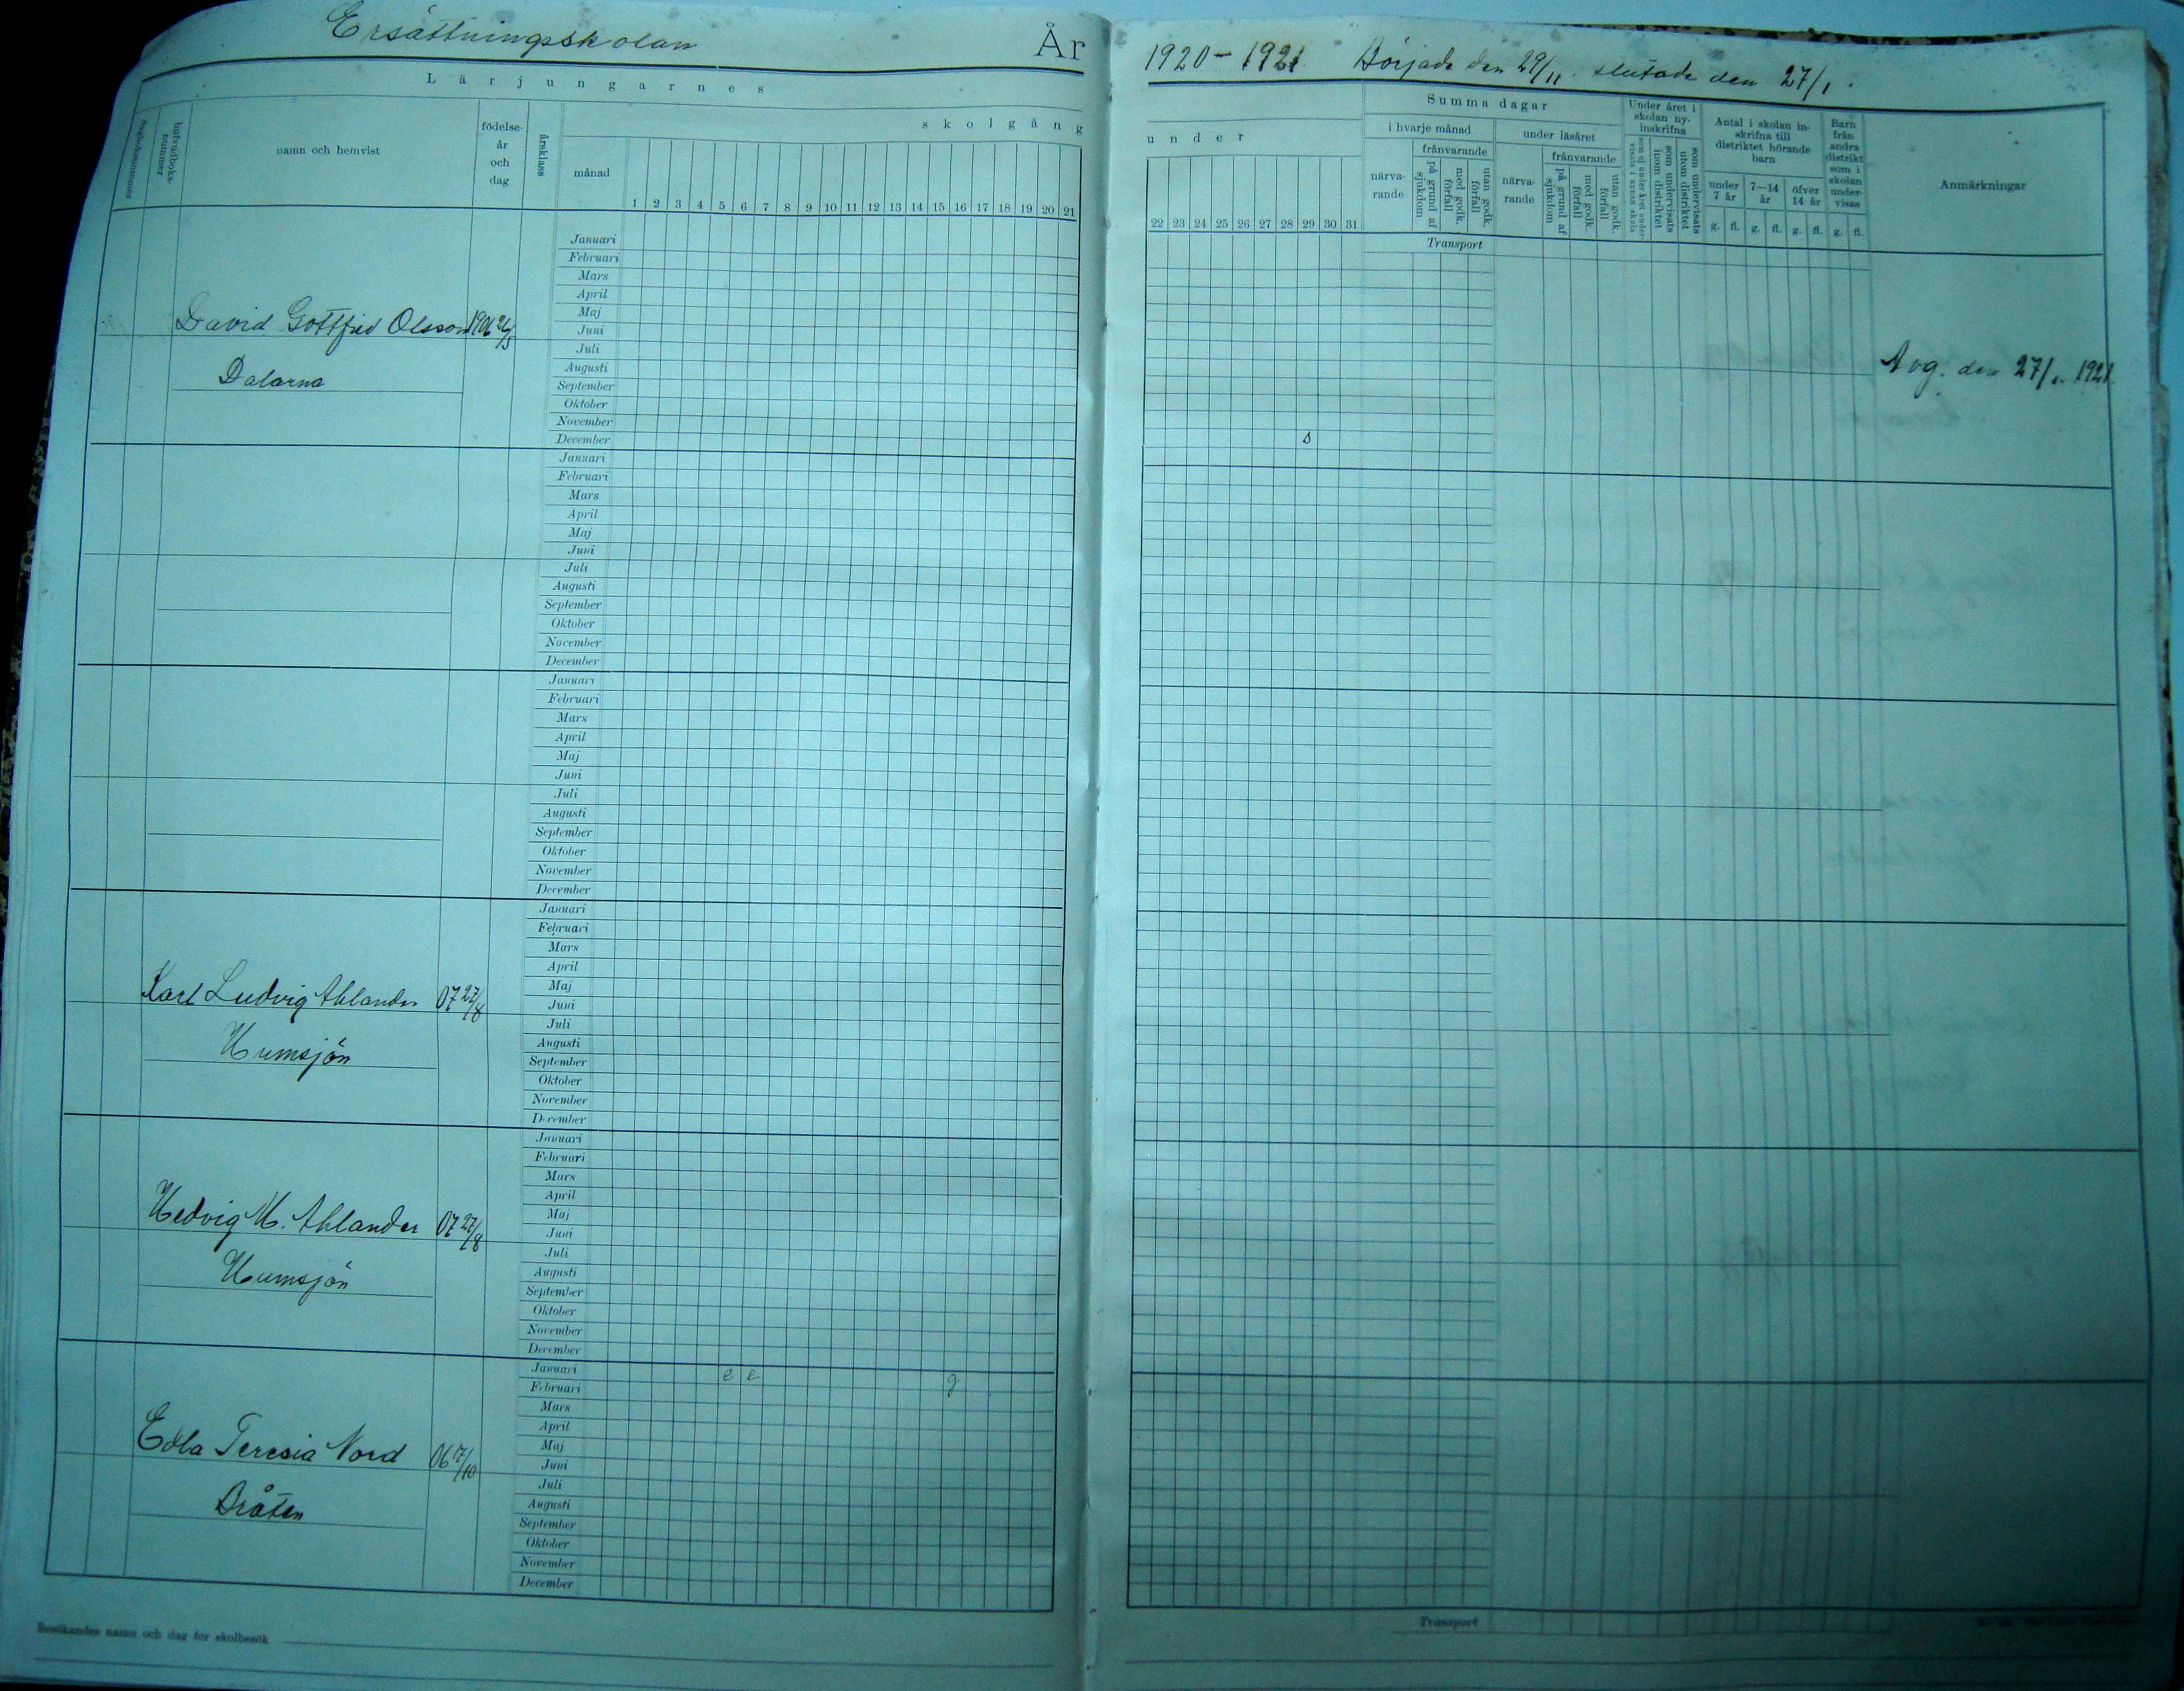 Ersättningsskolan År 1920-1921 Började den 29/11. slutade den 27/1.
Lärjungarnes
skolgång under
hufvudboks-
nummer
namn och hemvist
födelse-
år
och
dag
årsklass
månad
1 2 3 4 5 6 7 8 9 10 11 12 13 14 15 16 17 18 19 20 21
22 23 24 25 26 27 28 29 30 31
Summa dagar
i hvarje månad
närva-
rande
frånvarande
på grund af
sjukdom
med godk.
förfall
utan godk.
förfall
under läsåret
närva-
rande
frånvarande
på grund af
sjukdom
med godk.
förfall
utan godk.
förfall
Under året i
skolan ny-
inskrifna
som undervisats
inom distriktet
som undervisats
utom distriktet
Antal i skolan in-
skrifna till
distriktet hörande
barn
under
7 år
7—14
år
öfver
14 år
Barn
från
andra
distrikt
som i
skolan
under-
visas
g. fl. g. fl. g. fl. g. fl.
Anmärkningar
Transport
David Gottfrid Olsson 1906 26/5
Dalarna
Januari
Februari
Mars
April
Maj
Juni
Juli
Augusti
September
Oktober
November
December s
Avg. den 27/1. 1921.
Januari
Februari
Mars
April
Maj
Juni
Juli
Augusti
September
Oktober
November
December
Januari
Februari
Mars
April
Maj
Juni
Juli
Augusti
September
Oktober
November
December
Karl Ludvig Ahlander 07 27/8
Humsjön
Januari
Februari
Mars
April
Maj
Juni
Juli
Augusti
September
Oktober
November
December
Hedvig M. Ahlander 07 27/8
Humsjön
Januari
Februari
Mars
April
Maj
Juni
Juli
Augusti
September
Oktober
November
December
Edla Teresia Nord 06 17/10
Bråten
Januari e e g
Februari
Mars
April
Maj
Juni
Juli
Augusti
September
Oktober
November
December
Besökandes namn och dag för skolbesök
Transport